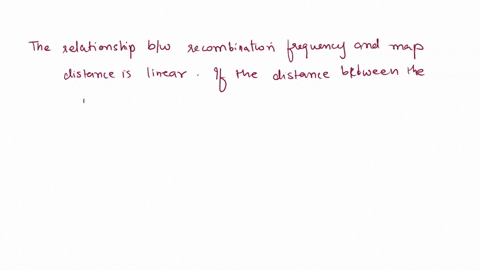 The relationship b/w recombination frequency and map
distance is linear. If the distance between the